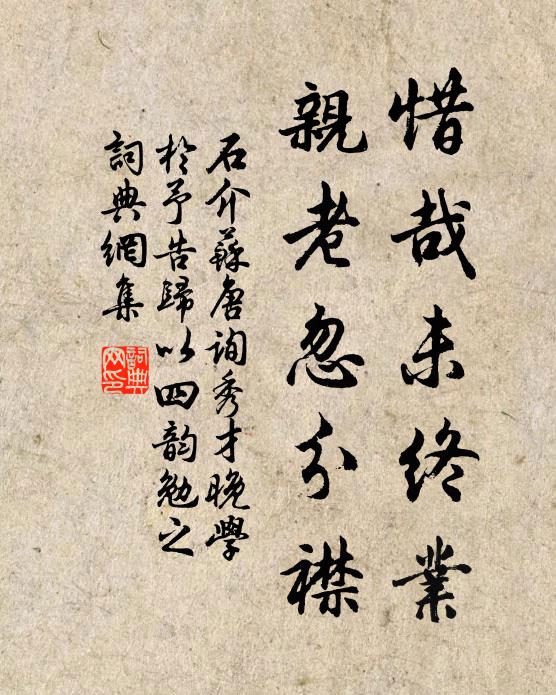 惜哉未終業
親老忽分襟
石介蘇唐詢秀才晚學
於予告歸以四韵勉之
詞典網集
詞典
网印